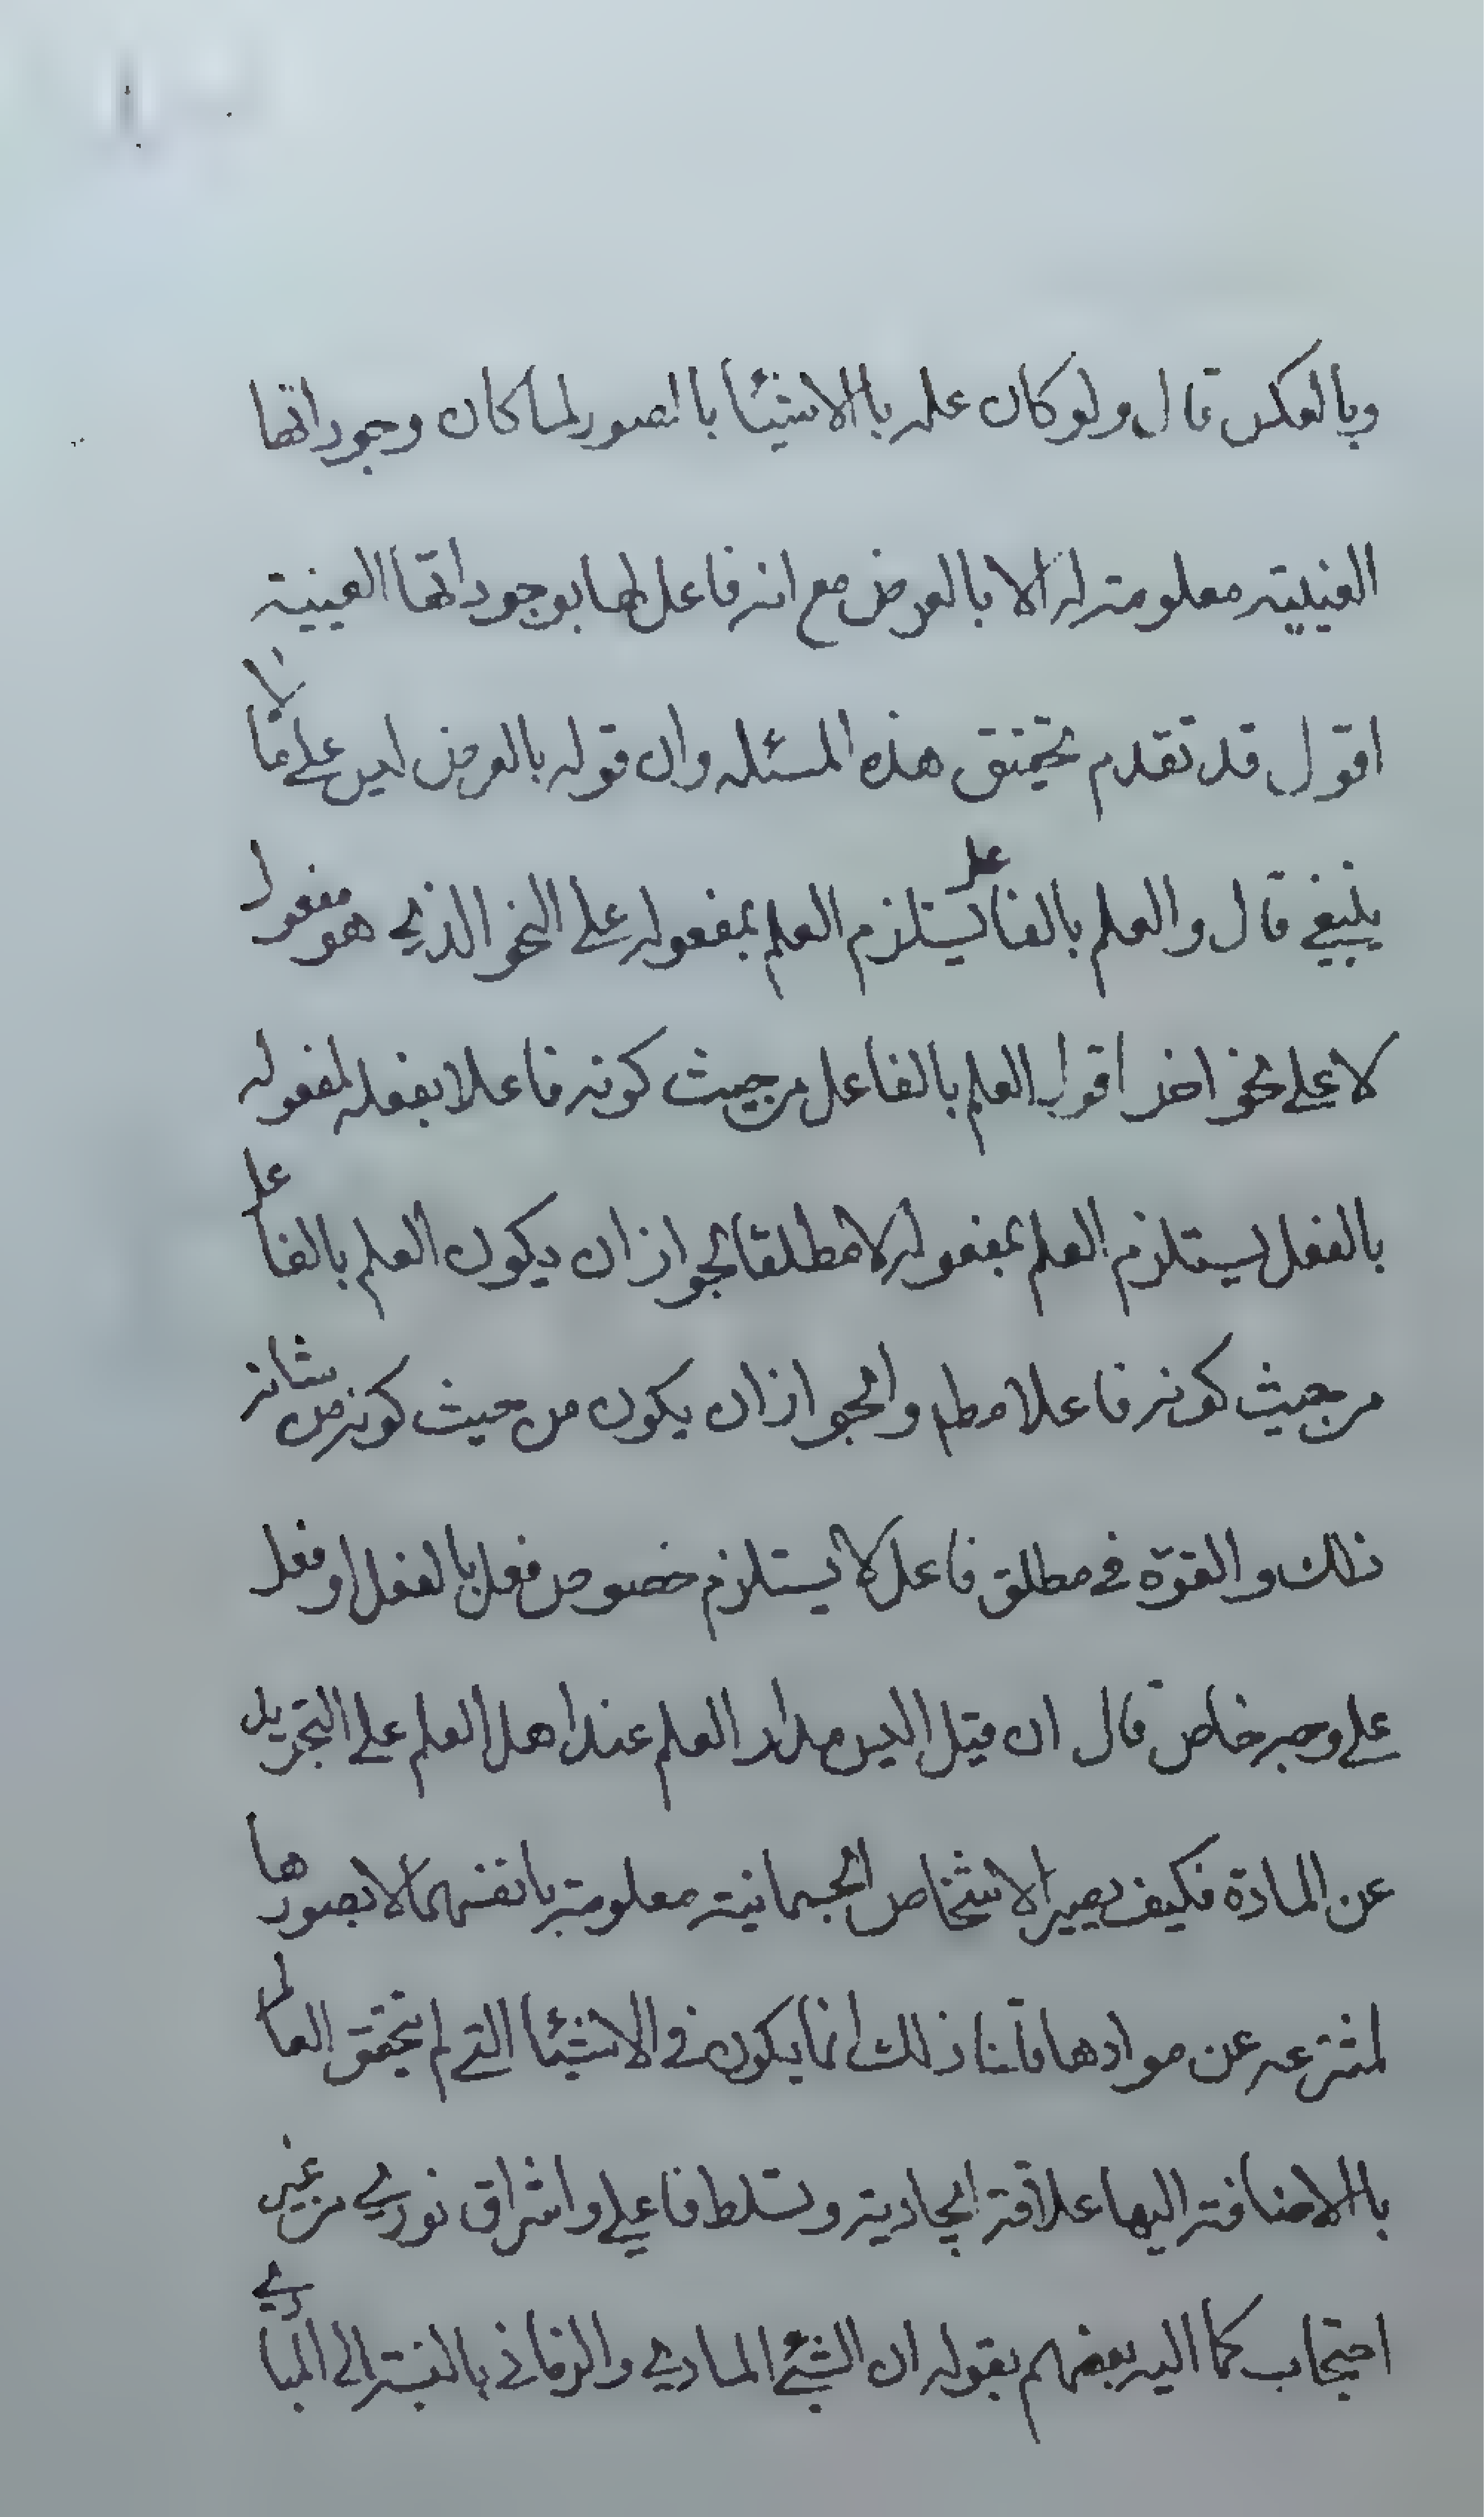 وبالعكس قال ولو كان علمه باالاشيئا بالصور لما كان وجوداتها
العينية معلومة له الا بالعرض مع انه فاعل لها بوجوداتها العينية
اقول قد تقدم تحقيق هذه المسئله وان قوله بالعرض ليس على ما لا
ينبغي قال والعلم بالفاعل يستلزم العلم بمفعوله على النحو الذي هو مفعول
لا على نحو اخر اقول العلم بالفاعل من حيث كونه فاعلا بفعله لمفعوله
بالفعل يستلزم العلم بمفعوله لا مطلقا لجواز ان يكون العلم بالفاعل
من حيث كونه فاعلا مطم والجواز ان يكون من حيث كونه من شانه
ذلك والقوة في مطلق فاعل لا يستلزم خصوص فعل بالفعل او فعل
على وجه خاص قال ان قيل اليس مدار العلم عند اهل العلم على التجريد
عن المادة فكيف يصير الاشخاص الجسمانية معلومة بانفسهما لا بصورها
لمنتزعه عن موادها قلنا ذلك انما يكون في الاشيئا التي لم يتحقق العالم
باالاضافة اليها علاقة ايجادية وتسلط فاعلي واشراق نوري من غير
احتجاب كما اليه بعضهم بقوله ان الشيئ المادي والزماني بالنسبة الى المبادي